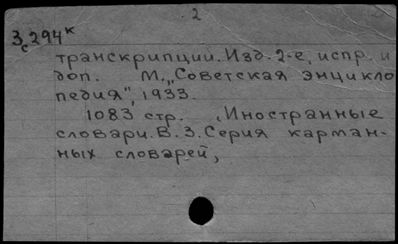 2
3с294к
транскрипции. Изд. 2-е, испр. и
доп. М., „Советская энцикло
педия", 1933.
1083 стр. , Иностранные
словари. В. 3. Серия карман-
ных словарей,